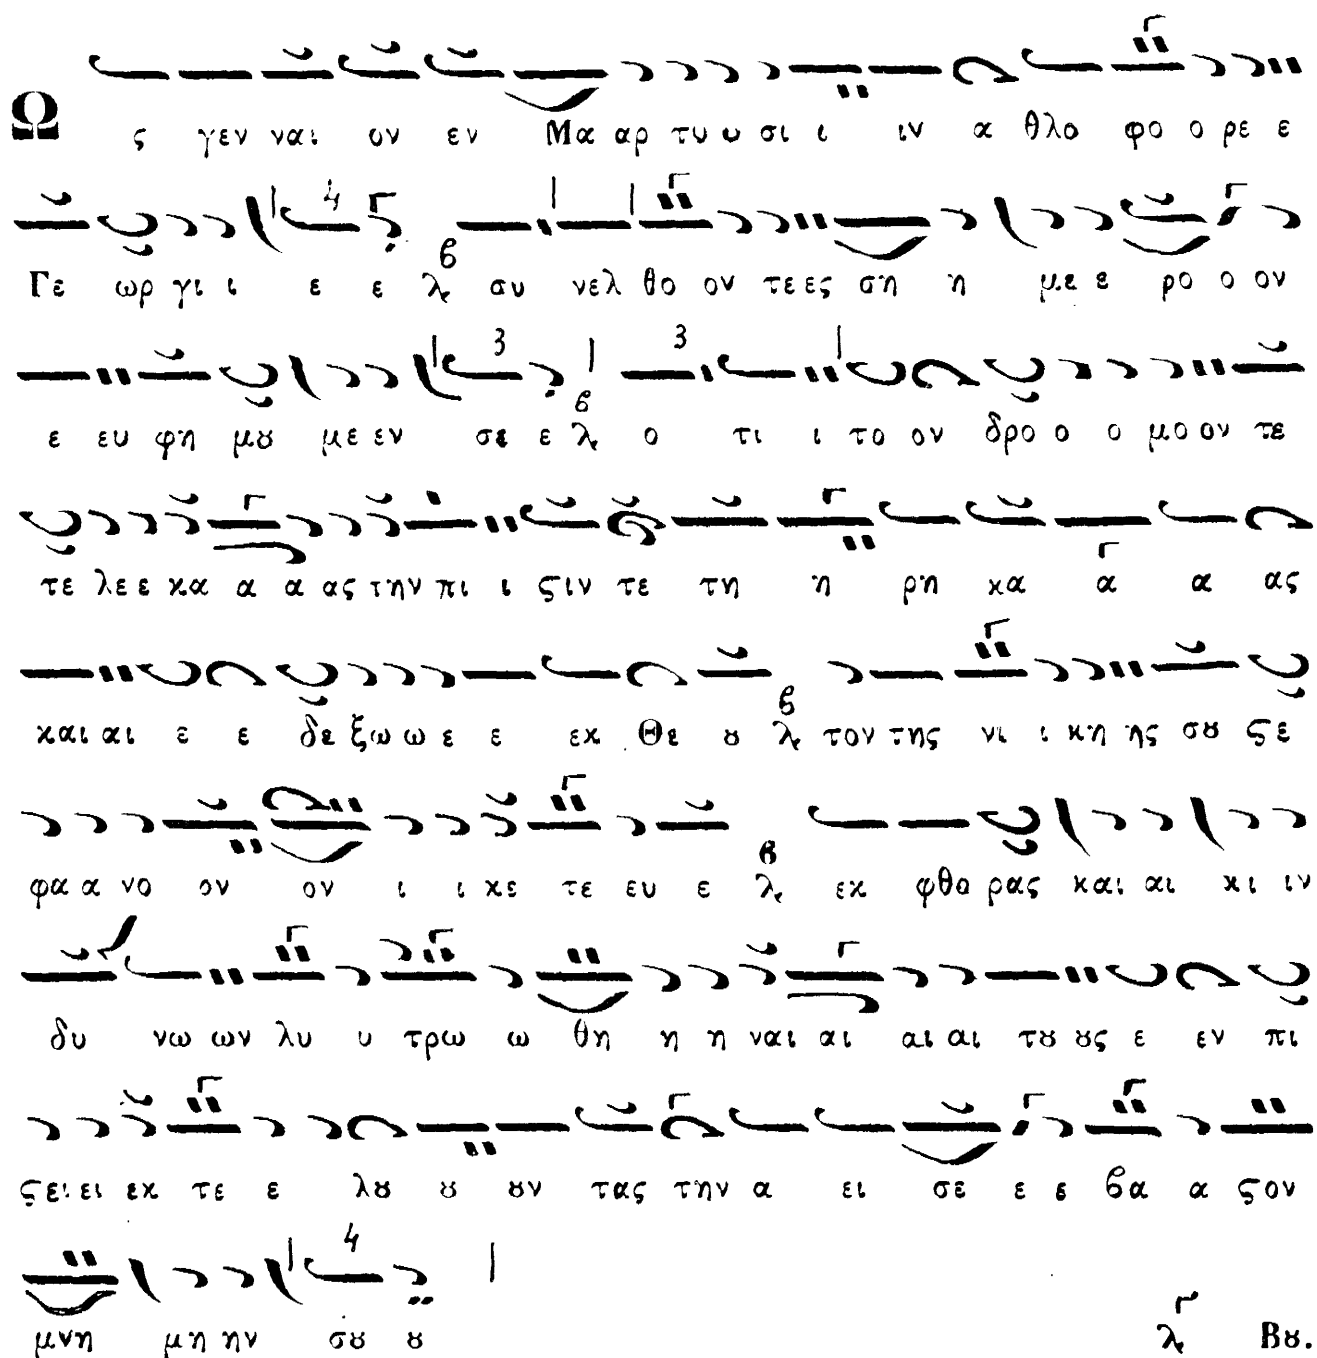 Ως γεν ναι ον εν Μα αρ τυ υ σι ι ιν α θλο φο ο ρε ε
Γε ωρ γι ι ε ε λ β συ νελ θο ον τεες ση η με ε ρο ο ον
ε ευ φη μȣ με εν σε ε λ β ο τι ι το ον δρο ο ο μο ον τε
τε λεε κα α α ας την πι ι ϛιν τε τη η ρη κα α α ας
και αι ε ε δε ξω ω ε ε εκ Θε ȣ λ β τον της νι ι κη ης σȣ ϛε
φα α νο ον ον ι ι κε τε ευ ε λ β εκ φθο ρας και αι κι ιν
δυ νω ων λυ υ τρω ω θη η η ναι αι αι αι τȣ ȣς ε εν πι
ϛει ει εκ τε ε λȣ ȣ ȣν τας την α ει σε ε ε βα α ϛον
μνη μη ην σȣ ȣ λ Βȣ.